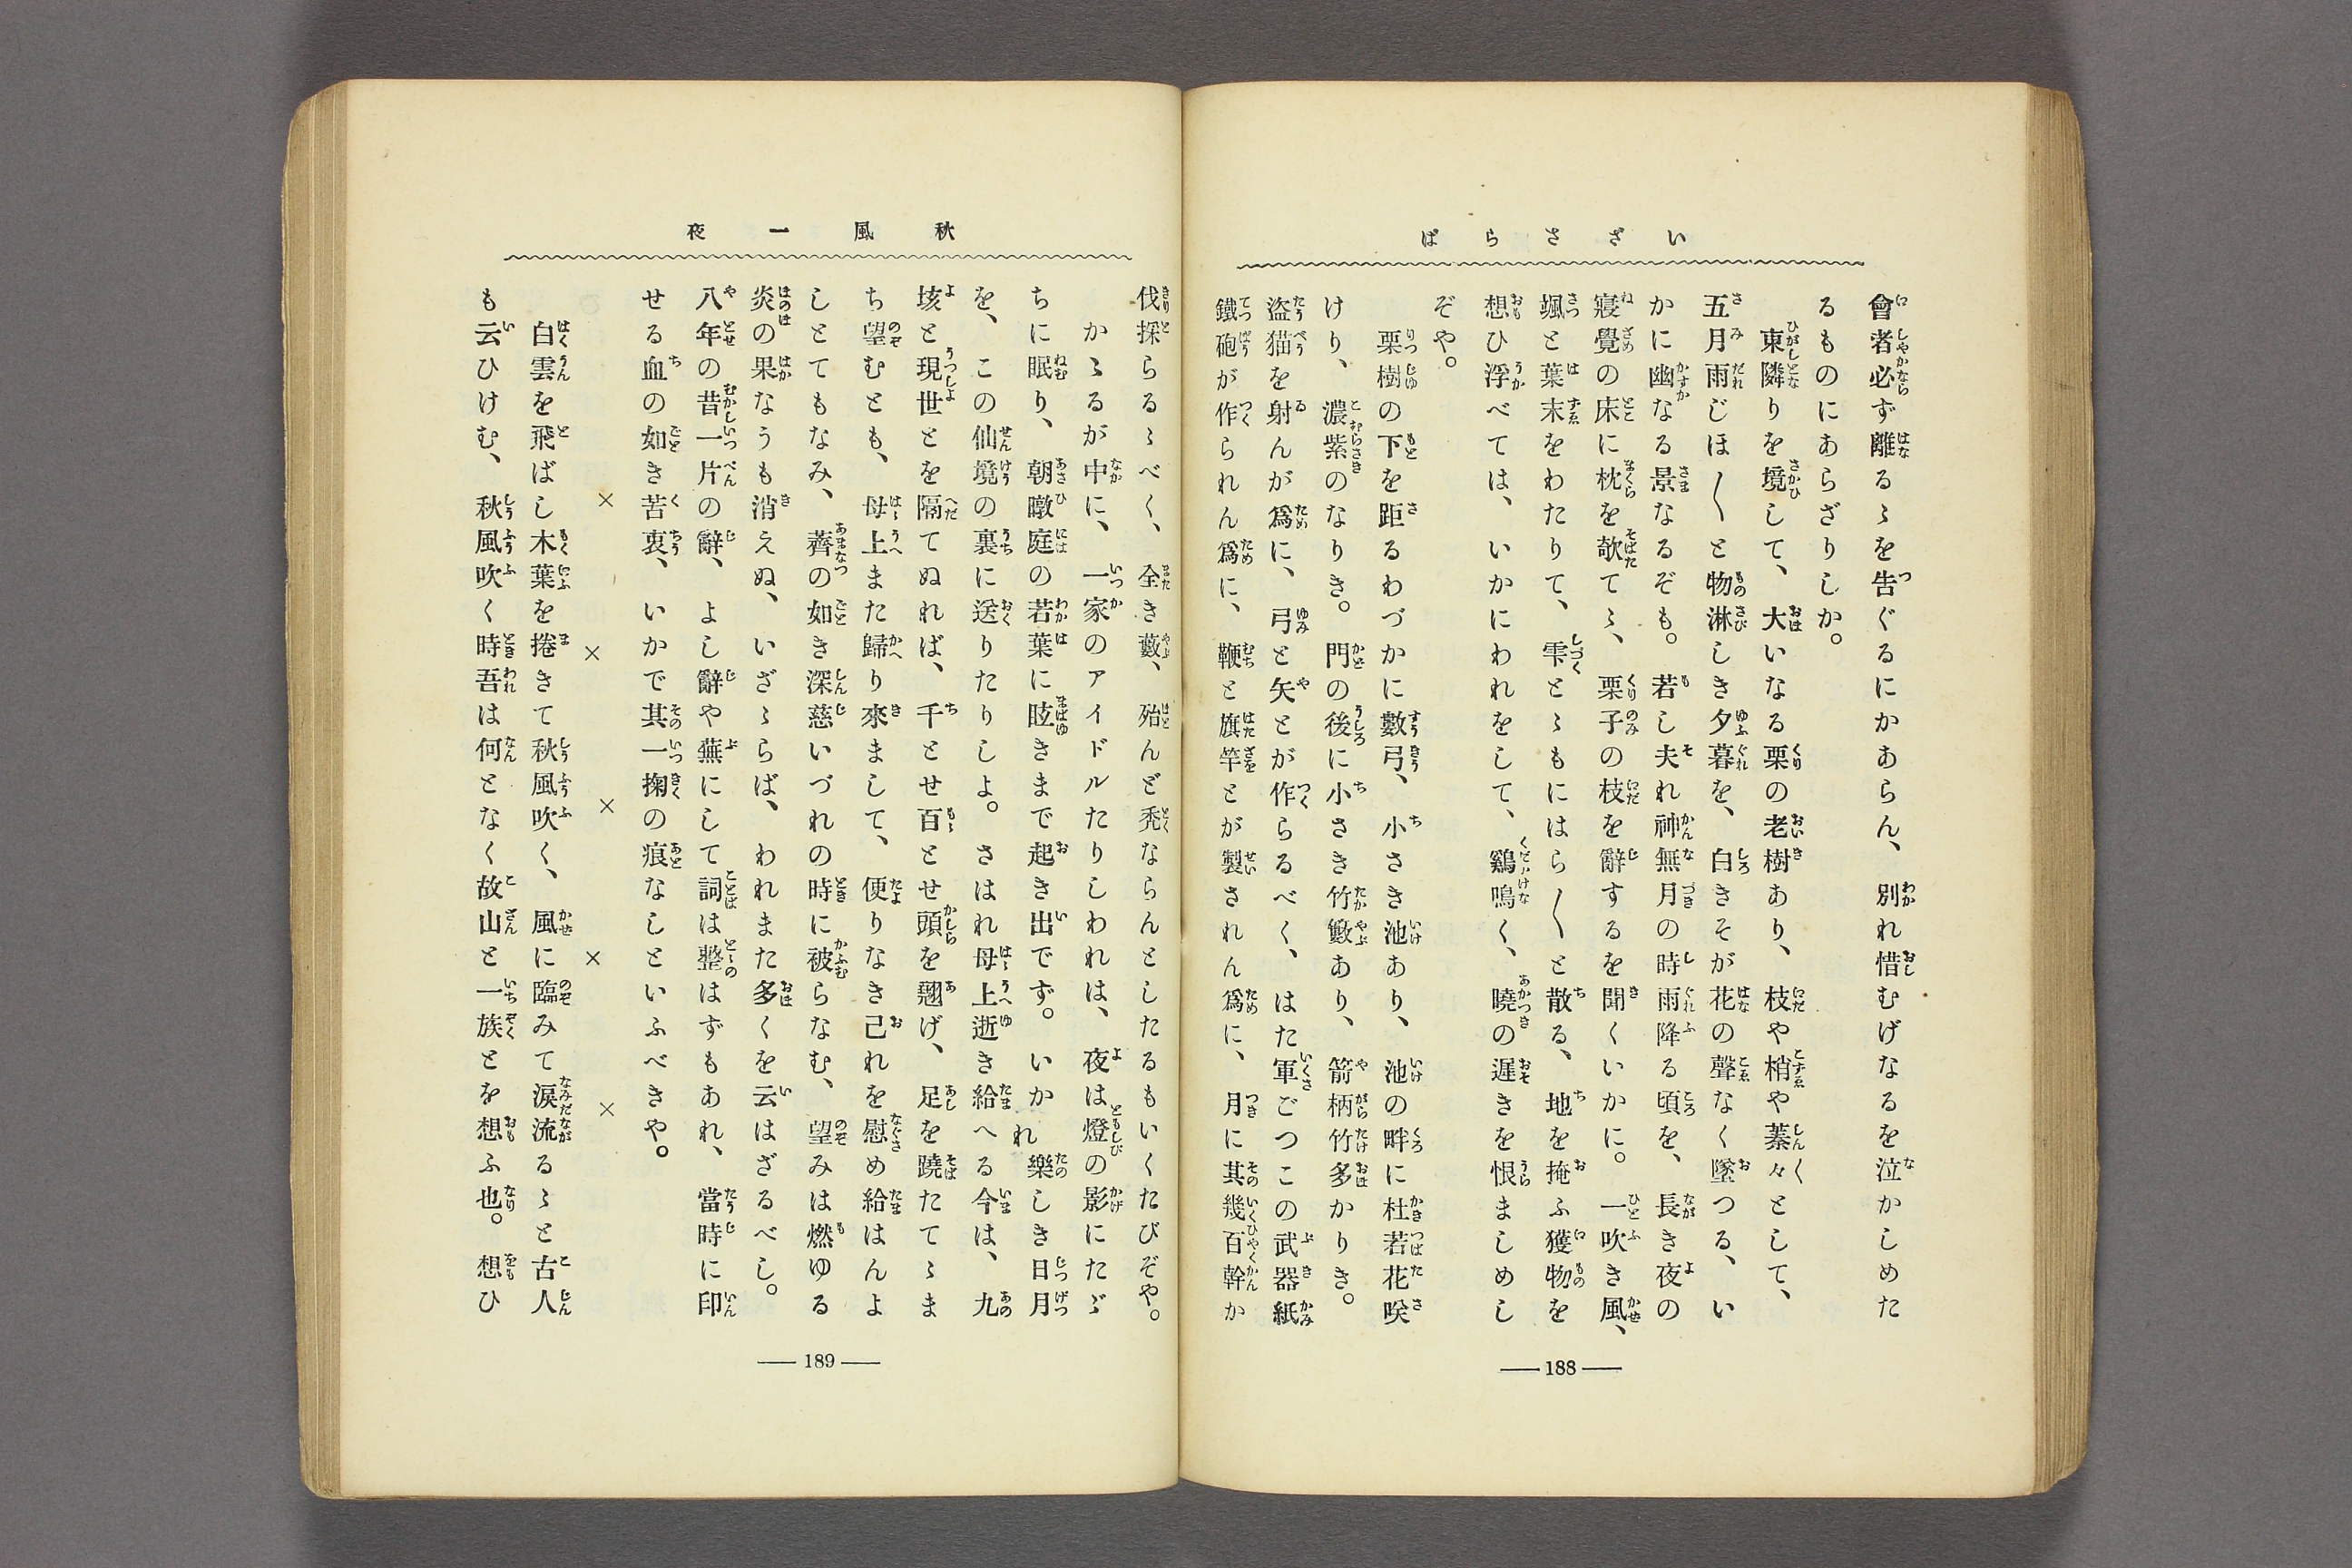 いざさらば
會者必ず離るゝを告ぐるにかあらん、別れ惜むげなるを泣かしめた
るものにあらざりしか。
東隣りを境して、大いなる栗の老樹あり、枝や梢や蓁々として、
五月雨じほ〱と物淋しき夕暮を、白きそが花の聲なく墜つる、い
かに幽かなる景なるぞも。若し夫れ神無月の時雨降る頃を、長き夜の
寢覺の床に枕を欹てゝ、栗子の枝を辭するを聞くいかに。一吹き風、
颯と葉末をわたりて、雫とゝもにはら〱と散る、地を掩ふ獲物を
想ひ浮べては、いかにわれをして、鷄鳴く、曉の遲きを恨ましめし
ぞや。
栗樹の下を距るわづかに數弓、小さき池あり、池の畔に杜若花咲
けり、濃紫のなりき。門の後に小さき竹籔あり、箭柄竹多かりき。
盜猫を射んが爲に、弓と矢とが作らるべく、はた軍ごつこの武器紙
鐵砲が作られん爲に、鞭と旗竿とが製されん爲に、月に其幾百幹か
― 188 ―
秋風一夜
伐採らるゝべく、全き藪、殆んど禿ならんとしたるもいくたびぞや。
かゝるが中に、一家のアイドルたりしわれは、夜は燈の影にたゞ
ちに眠り、朝暾庭の若葉に眩きまで起き出でず。いかれ樂しき日月
を、この仙境の裏に送りたりしよ。さはれ母上逝き給へる今は、九
垓と現世とを隔てぬれば、千とせ百とせ頭を翹げ、足を蹺たてゝま
ち望むとも、母上また歸り來まして、便りなき己れを慰め給はんよ
しとてもなみ、薺の如き深慈いづれの時に被らなむ、望みは燃ゆる
炎の果なうも消えぬ、いざゝらば、われまた多くを云はざるべし。
八年の昔一片の辭、よし辭や蕪にして詞は整はずもあれ、當時に印
せる血の如き苦衷、いかで其一掬の痕なしといふべきや。
× × × × ×
白雲を飛ばし木葉を捲きて秋風吹く、風に臨みて涙流るゝと古人
も云ひけむ、秋風吹く時吾は何となく故山と一族とを想ふ也。想ひ
― 189 ―